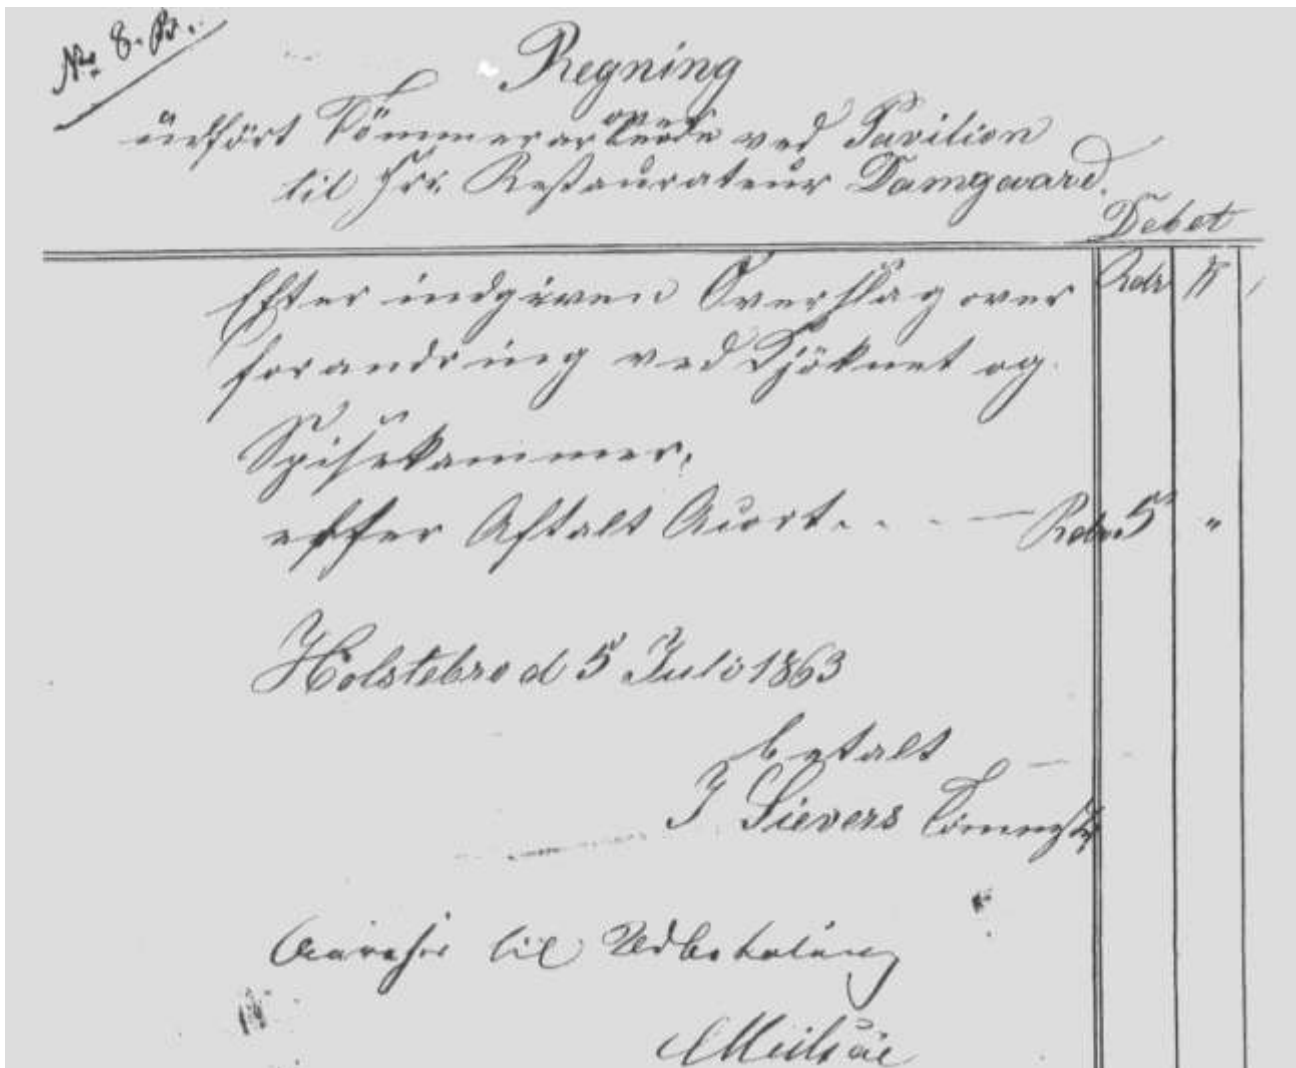 No 8. B.
Regning
over
udfört Tömmerarbeide ved Pavilion
til Hr. Restaurateur Damgaard.
Debet
Efter indgiven Överslag over Rdr ß
forandring ved Kjöknet og
Spisekammer,
efter Aftalt Acort . . . — Rdr. 5 "
Holstebro d 5 Juli 1863
betalt
J Sievers Tömmermstr
til Udbetaling